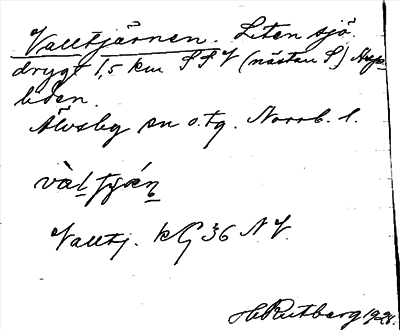 Valltjärnen. Liten sjö.
drygt 1,5 km SSV (nästan S)
liden.
Älvsby sn o. tg. Norrb. l.
Valltj. kG 36 NV.
H. Rutberg 1928.